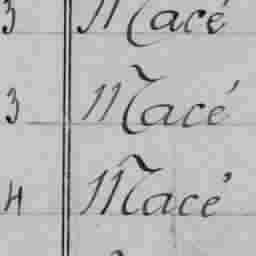 3 Macé
3 Macé
4 Macé